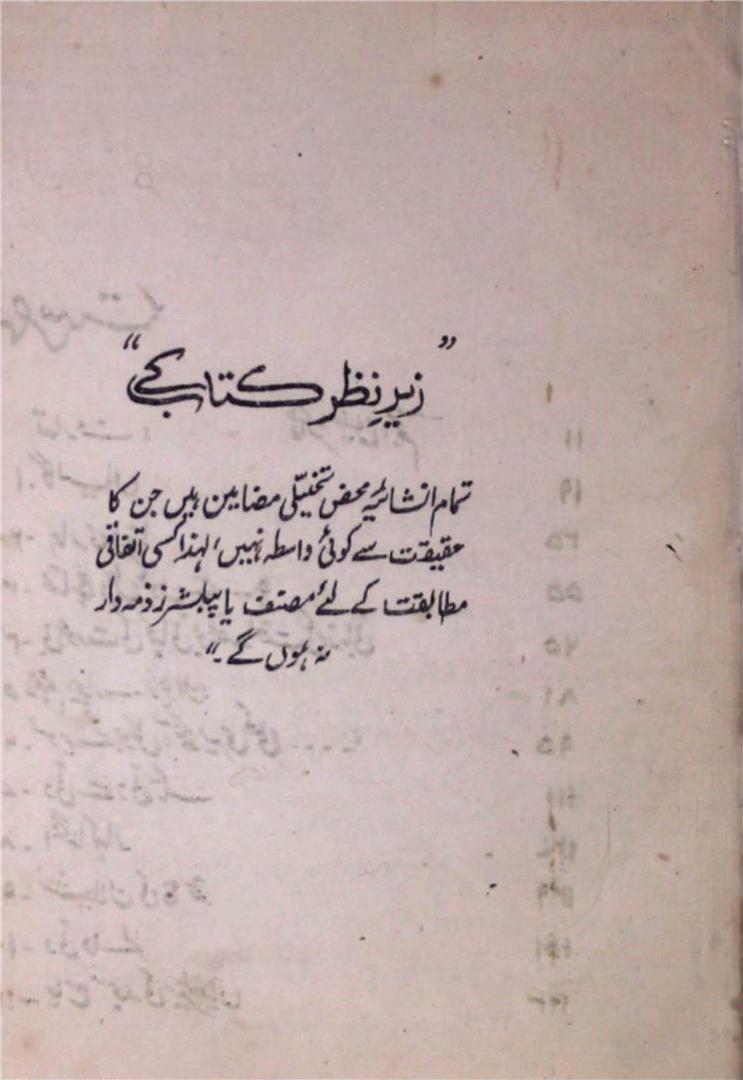 "زیرِ نظر کتاب کے"
تمام انشائیے محض تخیّلی مضامین ہیں جن کا
حقیقت سے کوئی واسطہ نہیں، لہٰذا کسی اتفاقی
مطابقت کے لئے مصنف یا پبلشرز ذمہ دار
نہ ہوں گے۔"